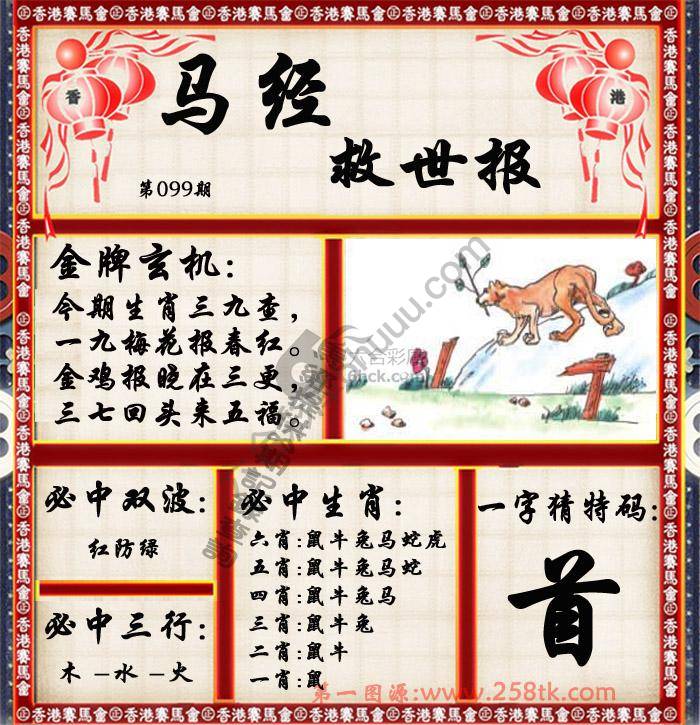 香港賽馬會
香
港
马经
救世报
第099期
金牌玄机:
今期生肖三九查,
一九梅花报春红。
金鸡报晓在三更,
三七回头来五福。
必中双波:
红防绿
必中三行:
木-水-火
必中生肖:
六肖:鼠牛兔马蛇虎
五肖:鼠牛兔马蛇
四肖:鼠牛兔马
三肖:鼠牛兔
二肖:鼠牛
一肖:鼠
一字猜特码:
首
第一图源:www.258tk.com